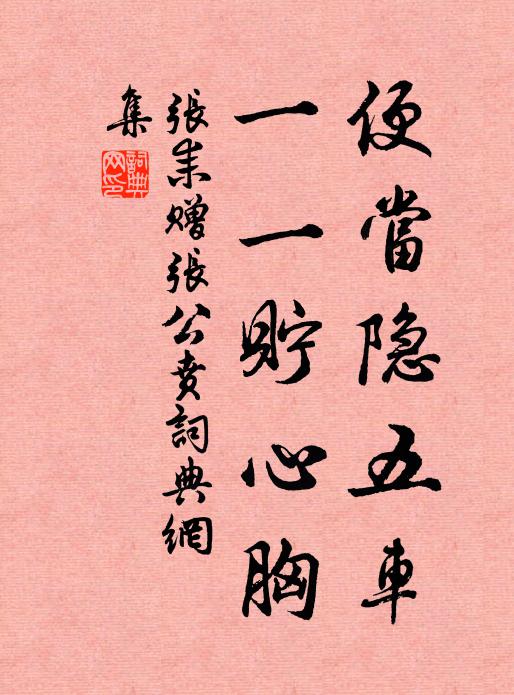 便當隐五車
一一貯心胸
張耒贈張公賁詞典網
集
詞典網印